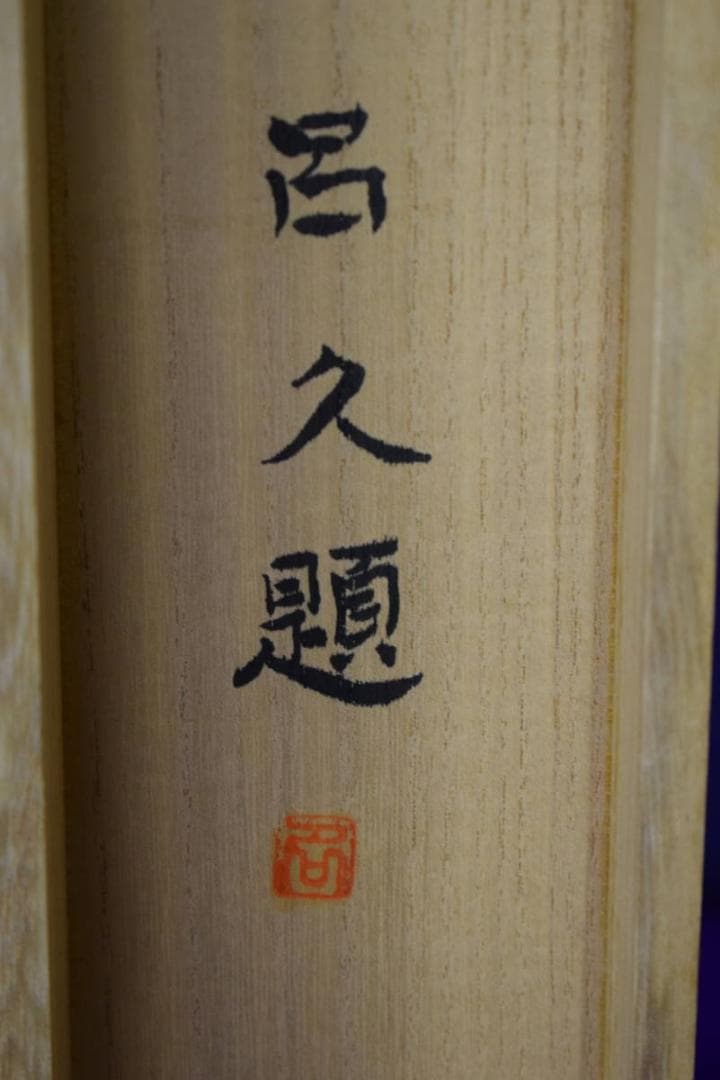 呂久題